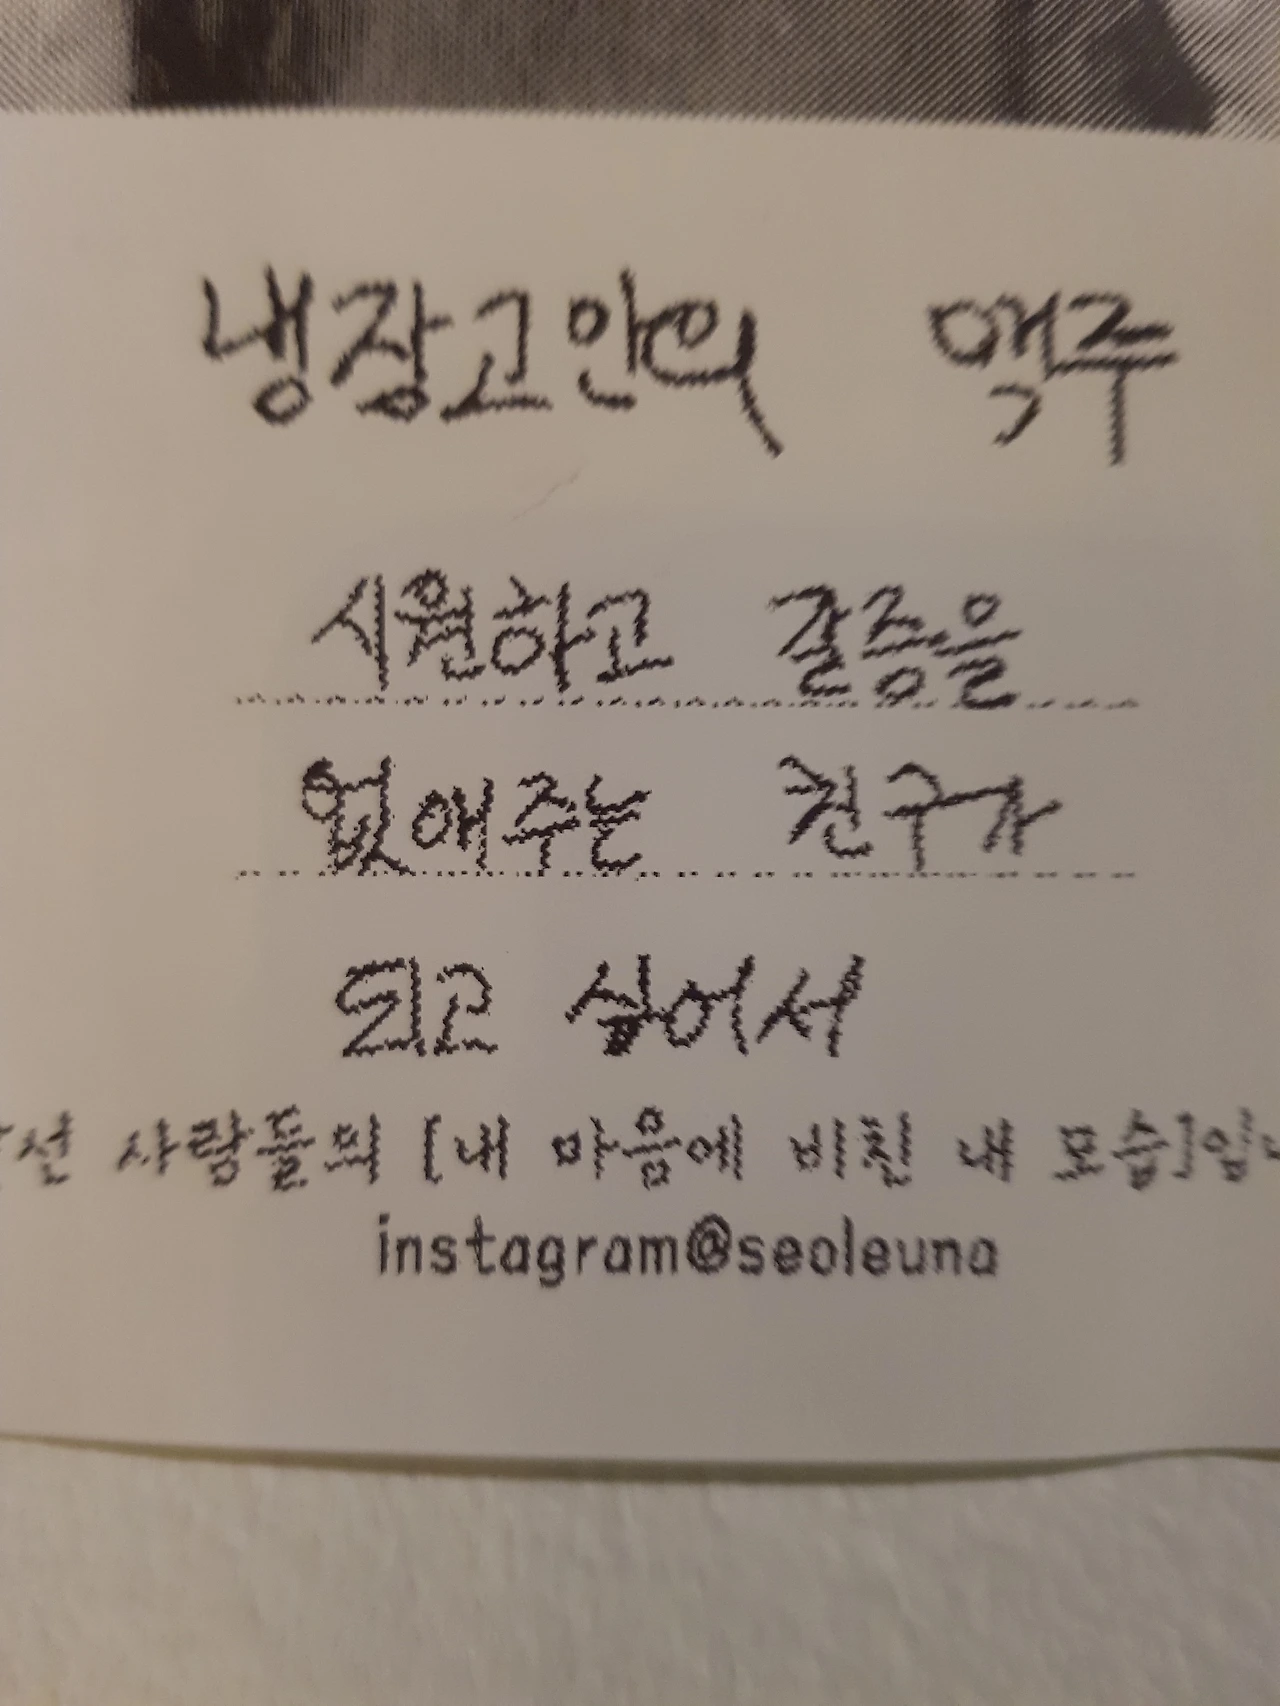 냉장고안의 맥주
시원하고 갈증을
없애주는 친구가
되고 싶어서
사람들의 [내 마음에 비친 내 모습]
instagram@seoleuna